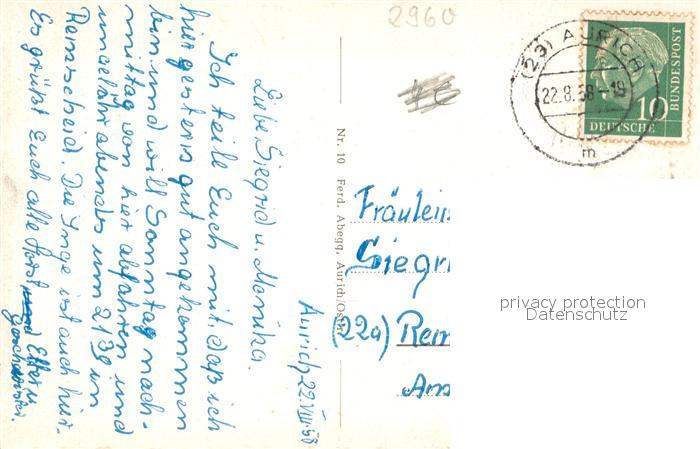 2960
(23) AURICH
22.8.58-19
m
10
DEUTSCHE
BUNDESPOST
Aurich, 22.VIII.58
Liebe Siegrid u. Monika.
Ich teile Euch mit, daß ich
hier gestern gut angekommen
bin und will Sonntag nach-
mittag von hier abfahren und
ungefähr abends um 21³⁰ in
Remscheid. Die Inge ist auch hier.
Es grüßt Euch alle Horst
Eltern
geschwister.
Nr. 10 Ferd. Abegg, Aurich/Ostfr.
Fräulein
Siegri
(22a) Rem
Am
privacy protection
Datenschutz